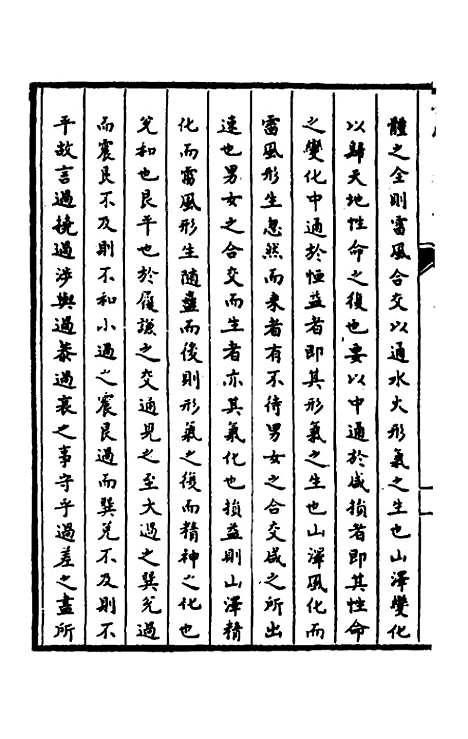 體之全則雷風合交以通水火形氣之生也山澤變化
以歸天地性命之復也要以中通於咸損者即其性命
之變化中通於恒益者即其形氣之生也山澤風化而
雷風形生忽然而來者有不待男女之合交咸之所出
速也男女之合交而生者亦其氣化也損益則山澤精
化而雷風形生隨蠱而後則形氣之復而精神之化也
兌和也艮平也於履謙之交通見之至大過之巽兌過
而震艮不及則不和小過之震艮過而巽兌不及則不
平故言過撓過涉與過恭過哀之事守乎過差之盡所